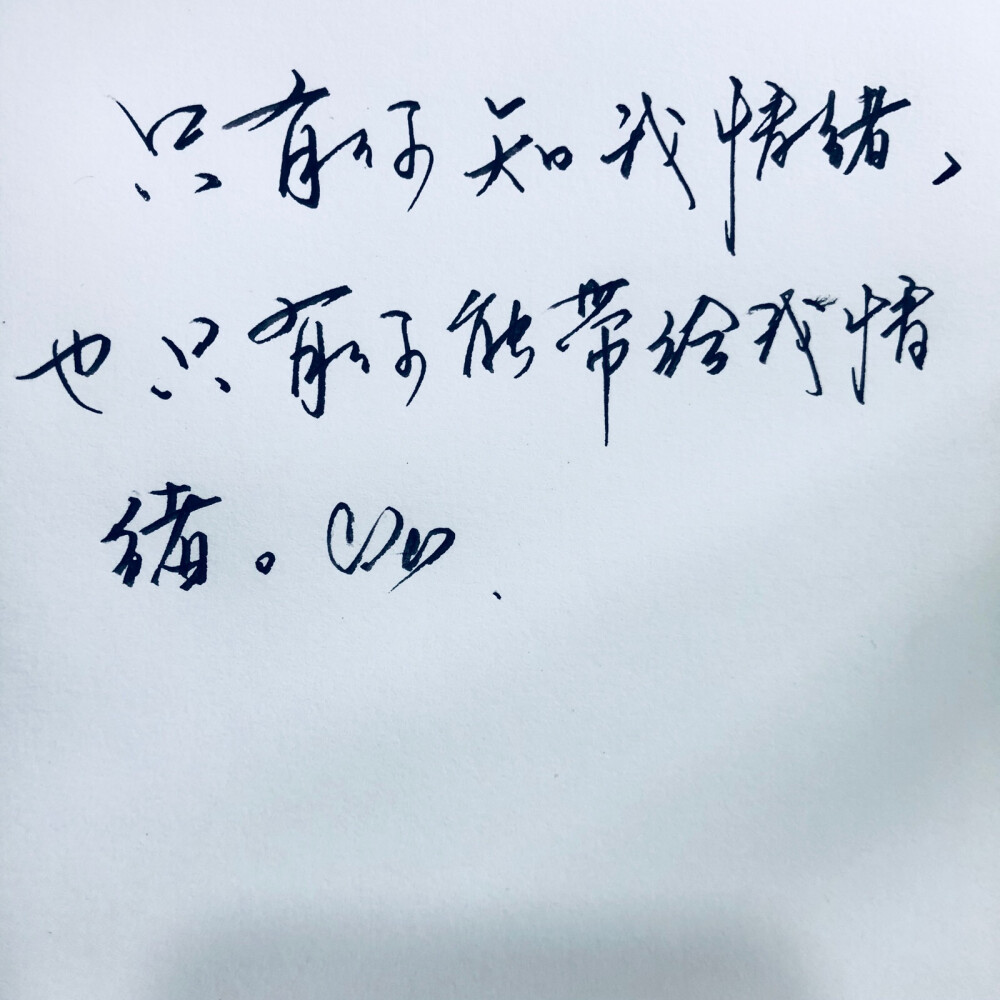 只有你知我情绪，
也只有你能带给我情
绪。